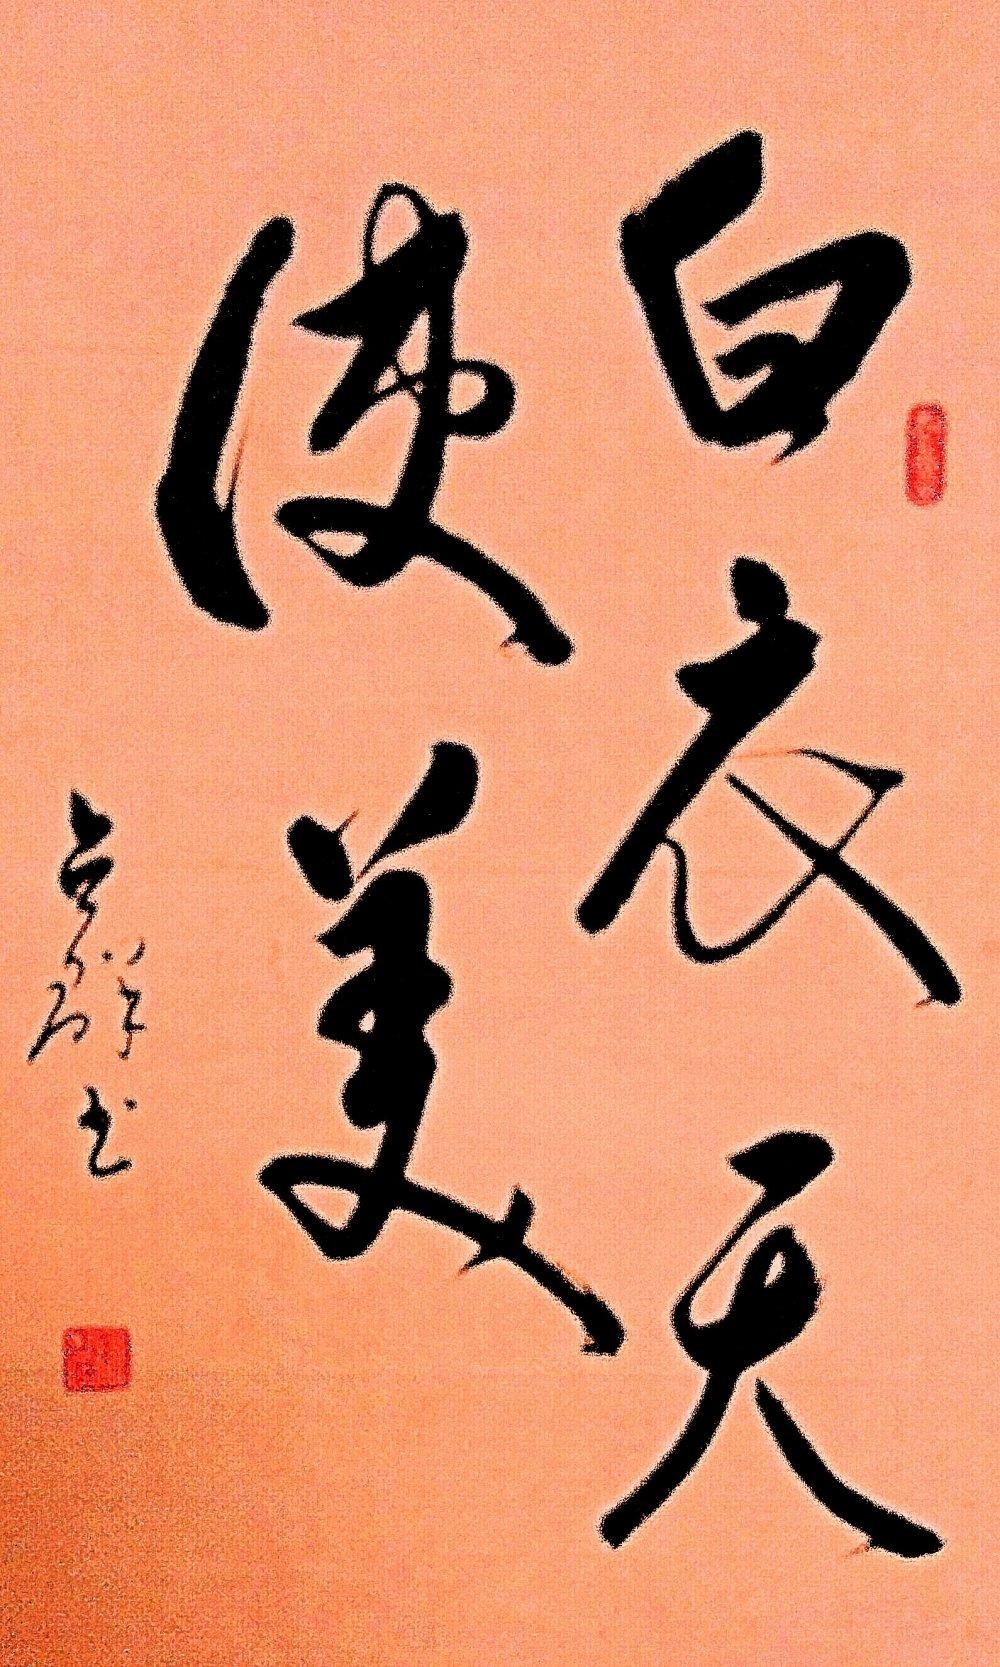 白衣天
使美